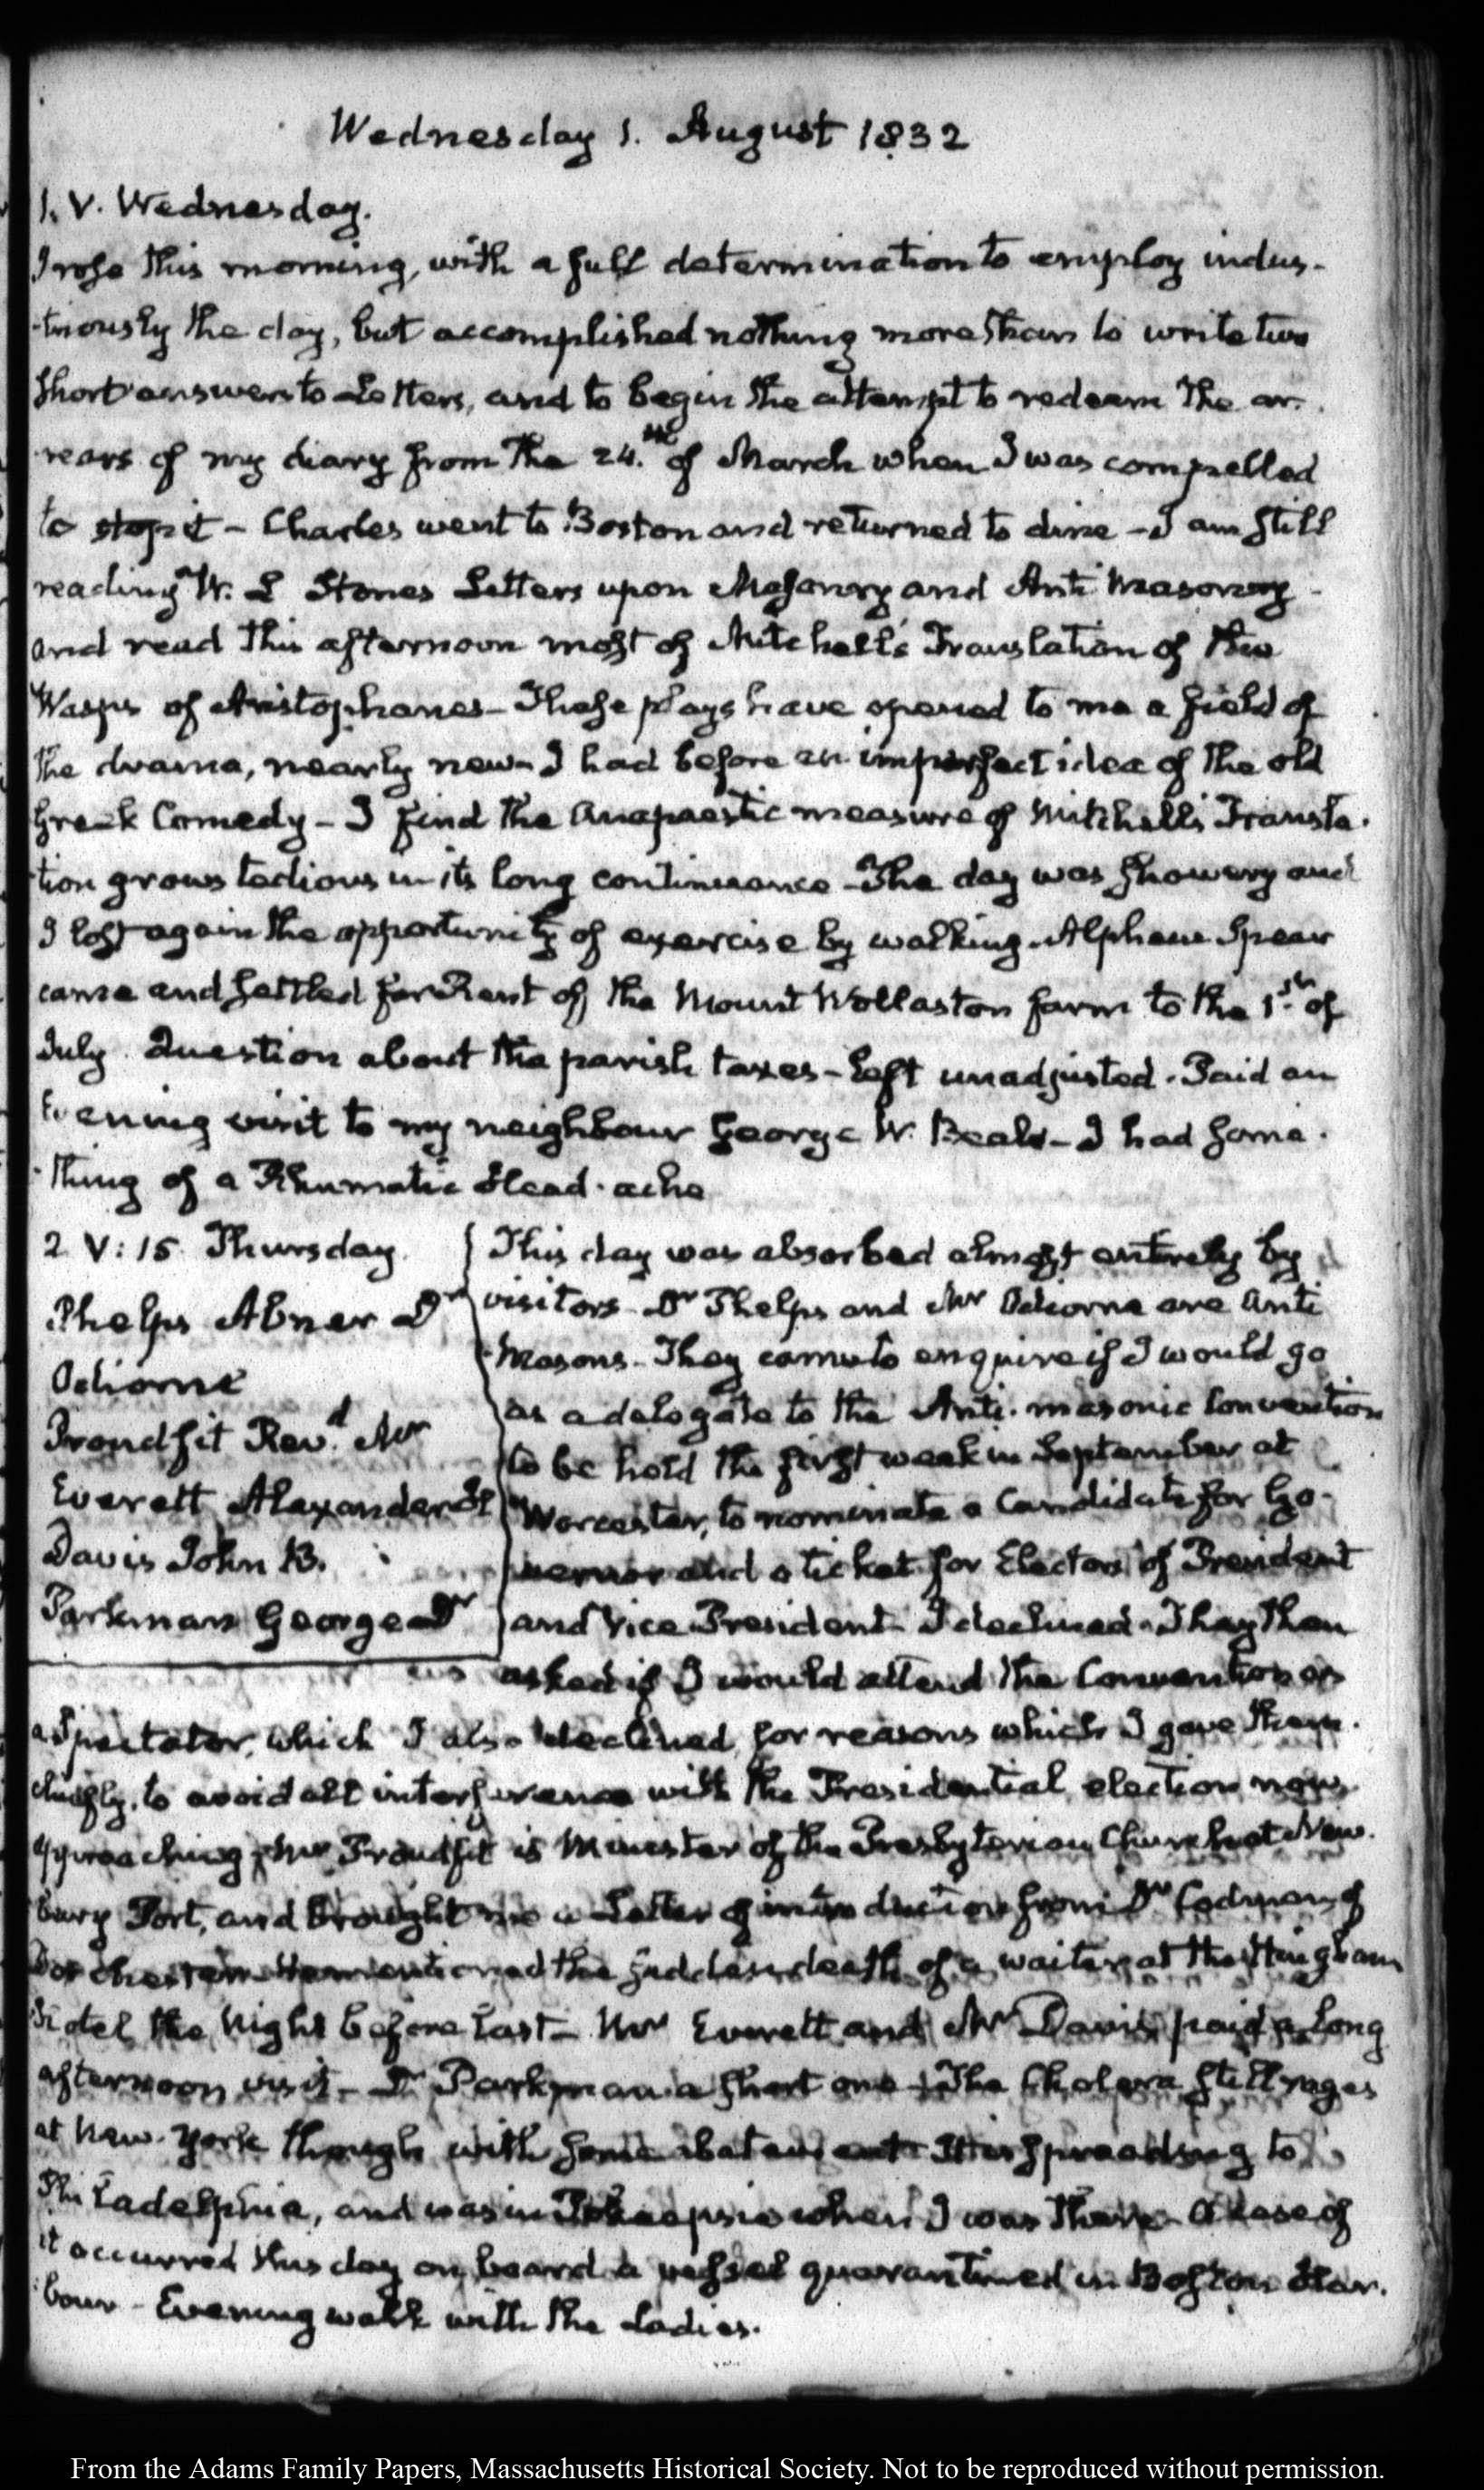 Wednesday 1. August 1832
1. V. Wednesday.
I rose this morning, with a full determination to employ indus-
-triously the day, but accomplished nothing more than to write two
short answers to Letters, and to begin the attempt to redeem the ar-
-rears of my diary from the 24.th of March when I was compelled
to stop it - Charles went to Boston and returned to dine - I am still
reading W. L Stones Letters upon Masonry and Anti Masonry -
and read this afternoon most of Mitchell's Translation of the
Wasps of Aristophanes - These plays have opened to me a field of
the drama, nearly new - I had before an imperfect idea of the old
Greek Comedy - I find the Anapaestic measure of Mitchell's Transla-
-tion grows tedious in its long continuance - The day was showery and
I lost again the opportunity of exercise by walking. Alpheus Spear
came and settled for Rent of the Mount Wollaston farm to the 1st of
July. Question about the parish taxes - left unadjusted. Paid an
Evening visit to my neighbour George W. Beale - I had some-
-thing of a Rhumatic Head-ache
2 V:15 Thursday.
Phelps Abner Dr
Odiorne
Proudfit Revd. Mr
Everett Alexander H
Davis John B.
Parkman George Dr
This day was absorbed almost entirely by
visitors - Dr Phelps and Mr Odiorne are Anti
-Masons - They came to enquire if I would go
as a delegate to the Anti-masonic Convention
to be held the first week in September at
Worcester, to nominate a Candidate for Go-
-vernor and a ticket for Electors of President
and Vice-President - I declined. They then
asked if I would attend the Convention as
a Spectator, which I also declined, for reasons which I gave them.
chiefly, to avoid all interference with the Presidential election now
approaching - Mr Proudfit is Minister of the Presbyterian Church at New-
bury Port, and brought me a Letter of introduction from Dr Codman of
Dorchester. He mentioned the sudden death of a waiter at the Hingham
Hotel the Night before last - Mr Everett and Mr Davis paid a long
afternoon visit - Dr Parkman a short one - The Cholera still rages
at New-York though with some abatement - It is spreading to
Philadelphia, and was in Pokeepsie when I was there - A case of
it occurred this day on board a vessel quarantined in Boston Har-
-bour - Evening walk with the Ladies.
From the Adams Family Papers, Massachusetts Historical Society. Not to be reproduced without permission.